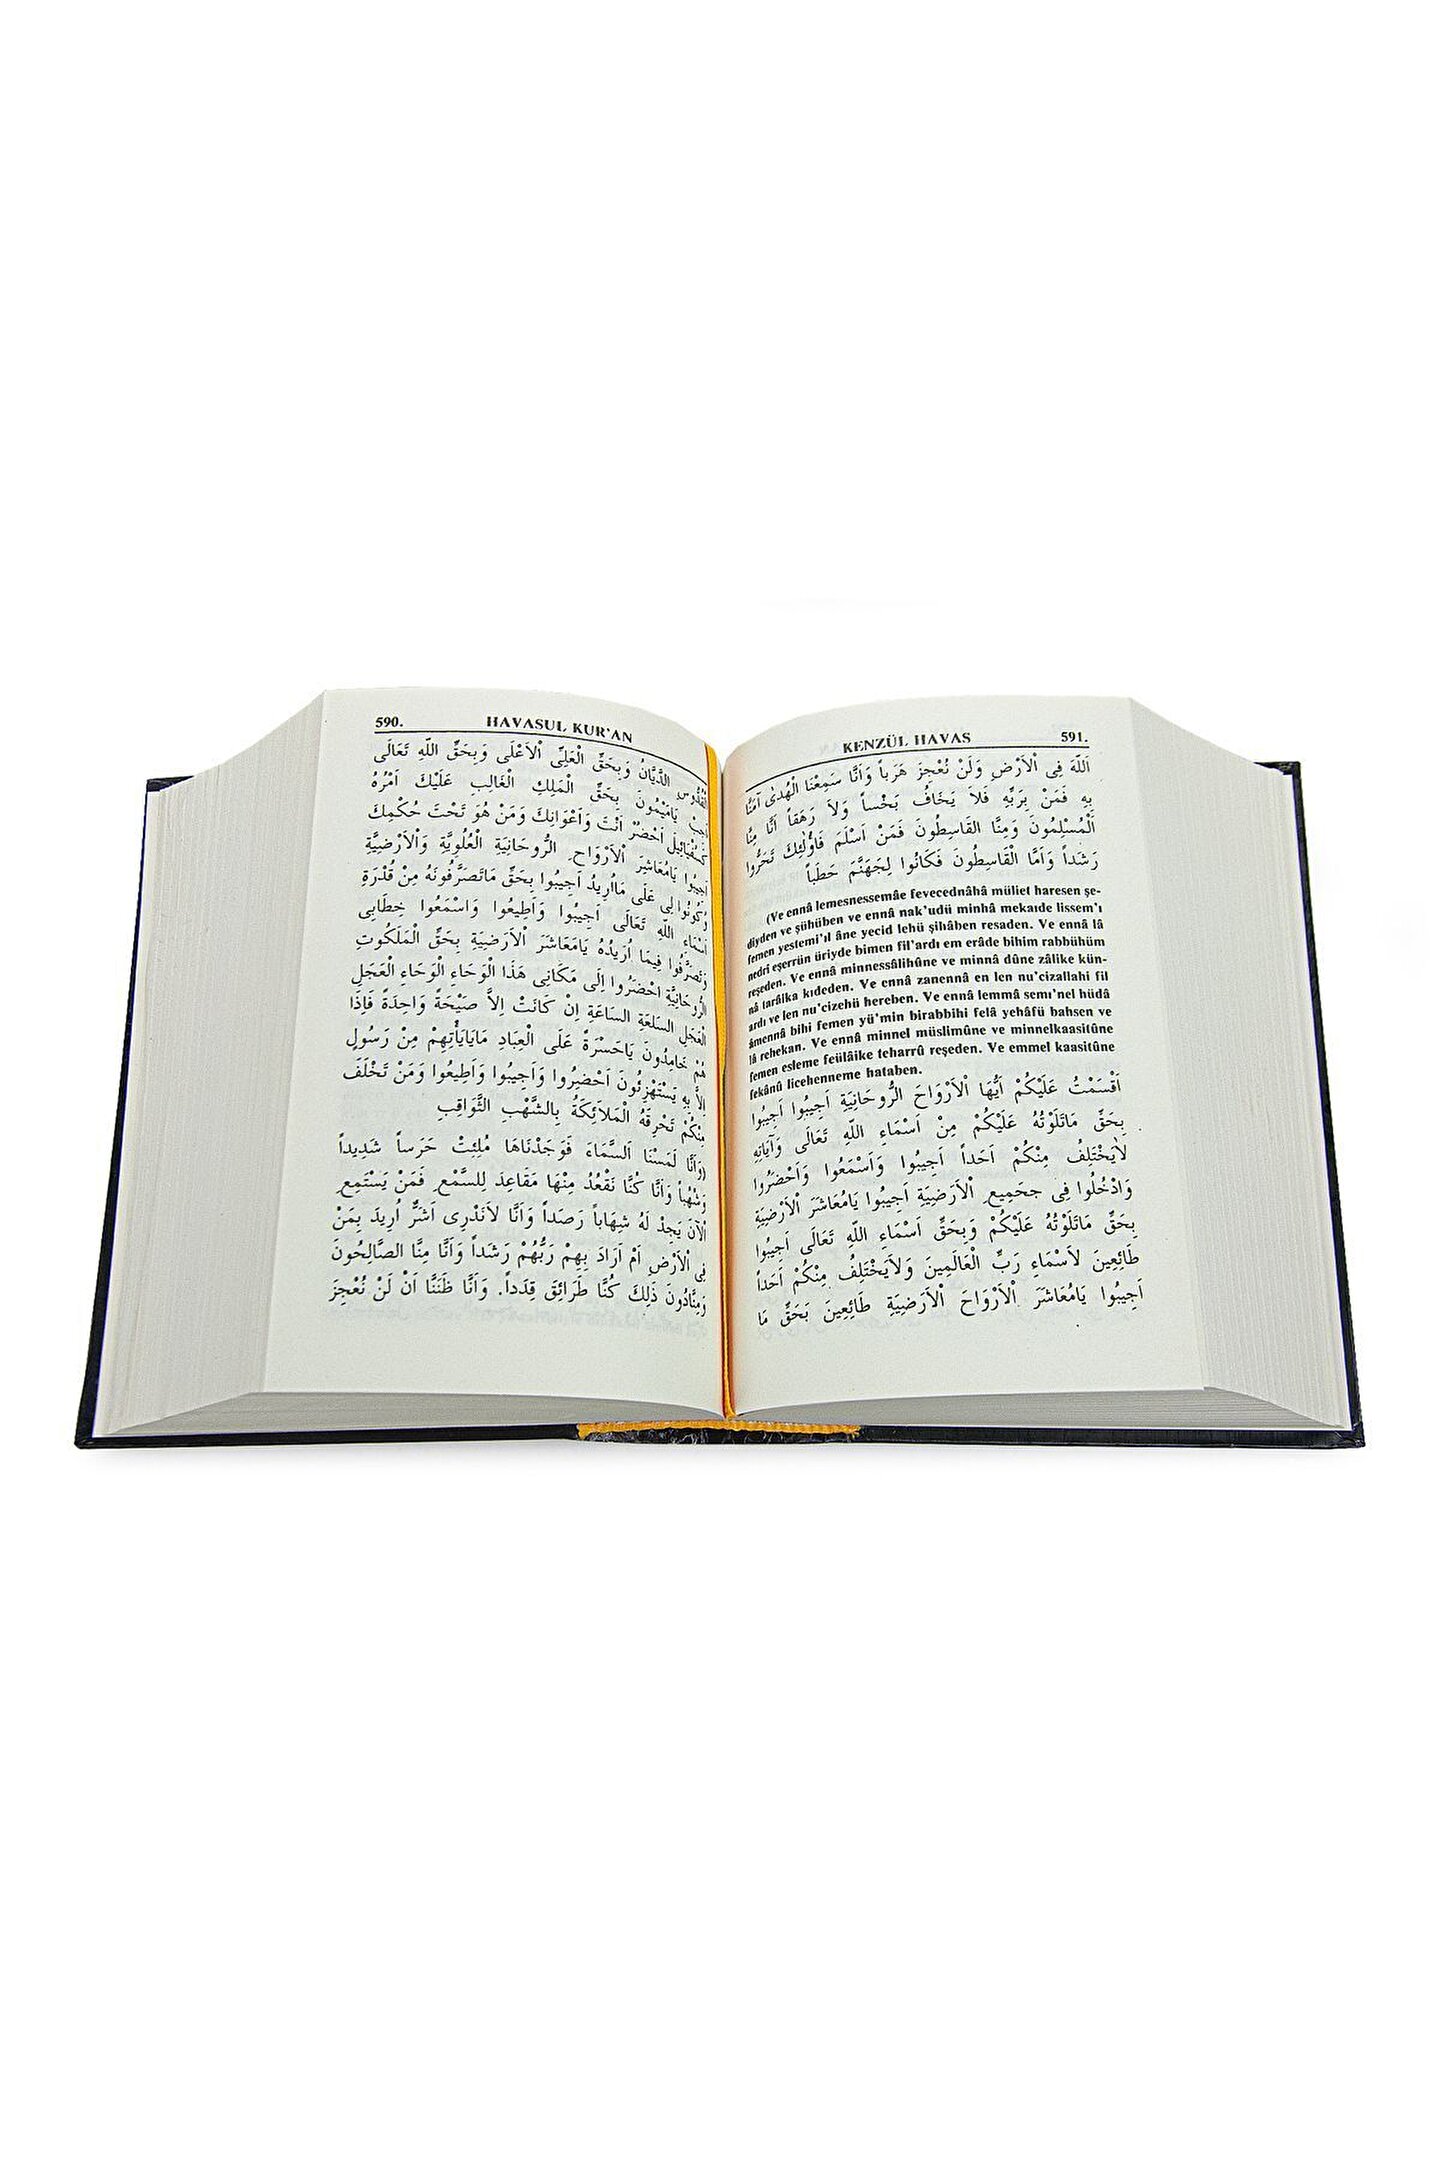 590. HAVASUL KUR'AN
اَلْقُدُّوسِ الدَّيَّانُ وَبِحَقِّ الْعَلِىِّ اْلاَعْلَى وَبِحَقِّ اللّٰهِ تَعَالَى
اَجِبْ يَامَيْمُونَ بِحَقِّ الْمَلِكِ الْغَالِبِ عَلَيْكَ اَمْرُهُ
كَسْفَيَائِيلَ اَحْضُرْ اَنْتَ وَاَعْوَانِكَ وَمَنْ هُوَ تَحْتَ حُكْمِكَ
اَجِيبُوا يَامُعَاشِرَ اْلاَرْوَاحِ الرُّوحَانِيَةِ الْعُلْوِيَّةِ وَاْلاَرْضِيَّةِ
وَكُونُوا لِى عَلَى مَااُرِيدُ اَجِيبُوا بِحَقِّ مَاتَصَرَّفُونَهُ مِنْ قُدْرَةِ
اَسْمَاءِ اللّٰهِ تَعَالَى اَجِيبُوا وَاَطِيعُوا وَاسْمَعُوا خِطَابِى
وَتَصَرَّفُوا فِيمَا اُرِيدُهُ يَامَعَاشَرَ اْلاَرَضِيَةِ بِحَقِّ الْمَلَكُوتِ
الرُّوحَانِيَّةِ احْضَرُوا اِلَى مَكَانِى هَذَا الْوَحَاءِ الْوَحَاءِ الْعَجَلِ
الْعَجَلِ السَّاعَةِ السَاعَةِ اِنْ كَانَتْ اِلاَّ صَيْحَةً وَاحِدَةً فَاِذَا
هُمْ خَامِدُونَ يَاحَسْرَةً عَلَى الْعِبَادِ مَايَاْتِيهِمْ مِنْ رَسُولٍ
اِلاَّ بِهِ يَسْتَهْزِئُونَ اَحْضِرُوا وَاَجِيبُوا وَاَطِيعُوا وَمَنْ تَخْلَفَ
مِنْكُمْ تَحْرِقَهُ الْمَلاَئِكَةُ بِالشُّهْبِ الثَّوَاقِبِ
(وَاَنَّا لَمَسْنَا السَّمَاءَ فَوَجَدْنَاهَا مُلِئَتْ حَرَساً شَدِيداً
وَشُهُباً وَاَنَّا كُنَّا نَقْعُدُ مِنْهَا مَقَاعِدَ لِلسَّمْعِ فَمَنْ يَسْتَمِعِ
اْلاَنَ يَجِدْ لَهُ شِهَاباً رَصَداً وَاَنَّا لاَنَدْرِى اَشَرٌّ اُرِيدَ بِمَنْ
فِى اْلاَرْضِ اَمْ اَرَادَ بِهِمْ رَبُّهُمْ رَشَداً وَاَنَّا مِنَّا الصَّالِحُونَ
وَمِنَّادُونَ ذَلِكَ كُنَّا طَرَائِقَ قِدَداً. وَاَنَّا ظَنَنَّا اَنْ لَنْ نُعْجِزَ
KENZÜL HAVAS 591.
اَللّٰهَ فِى اْلاَرْضِ وَلَنْ نُعْجِزَ هَرَباً وَاَنَّا سَمِعْنَا الْهُدٰى اٰمَنَّا
بِهِ فَمَنْ بِرَبِّهِ فَلاَ يَخَافُ بَخْساً وَلاَ رَهَقاً اَنَّا مِنَّا
الْمُسْلِمُونَ وَمِنَّا الْقَاسِطُونَ فَمَنْ اَسْلَمَ فَاُولٰئِكَ تَحَرَّوا
رَشَداً وَاَمَّا الْقَاسِطُونَ فَكَانُوا لِجَهَنَّمَ حَطَباً
(Ve ennâ lemesnessemâe fevecednâhâ müliet haresen şe-
diyden ve şühüben ve ennâ nak'udü minhâ mekaıde lissem'ı
femen yestemi'ıl âne yecid lehü şihâben resaden. Ve ennâ lâ
nedrî eşerrün üriyde bimen fil'ardı em erâde bihim rabbühüm
reşeden. Ve ennâ minnessâlihûne ve minnâ dûne zâlike kün-
nâ tarâika kıdeden. Ve ennâ zanennâ en len nu'cizallahi fil
ardı ve len nu'cizehü hereben. Ve ennâ lemmâ semı'nel hüdâ
âmennâ bihi femen yü'min birabbihi felâ yehâfü bahsen ve
lâ rehekan. Ve ennâ minnel müslimûne ve minnelkaasitûne
femen esleme feülâike teharrû reşeden. Ve emmel kaasitûne
fekânû licehenneme hataben.
اَقْسَمْتُ عَلَيْكُمْ اَيُّهَا اْلاَرْوَاحَ الرُّوحَانِيَةِ اَجِيبُوا اَجِيبُوا
بِحَقِّ مَاتَلَوْتُهُ عَلَيْكُمْ مِنْ اَسْمَاءِ اللّٰهِ تَعَالَى وَآيَاتِهِ
لاَيَخْتَلِفُ مِنْكُمْ اَحَداً اَجِيبُوا وَاَسْمَعُوا وَاَحْضَرُوا
وَادْخُلُوا فِى جحَمِيعِ اْلاَرَضِيَةِ اَجِيبُوا يَامُعَاشَرَ اْلاَرْضِيَةِ
بِحَقِّ مَاتَلَوْتُهُ عَلَيْكُمْ وَبِحَقِّ اَسْمَاءِ اللّٰهِ تَعَالَى اَجِيبُوا
طَائِعِينَ لاَسْمَاءِ رَبِّ الْعَالَمِينَ وَلاَيَخْتَلِفُ مِنْكُمْ اَحَداً
اَجِيبُوا يَامُعَاشَرَ اْلاَرْوَاحَ اْلاَرَضِيَةِ طَائِعِينَ بَحَقِّ مَا